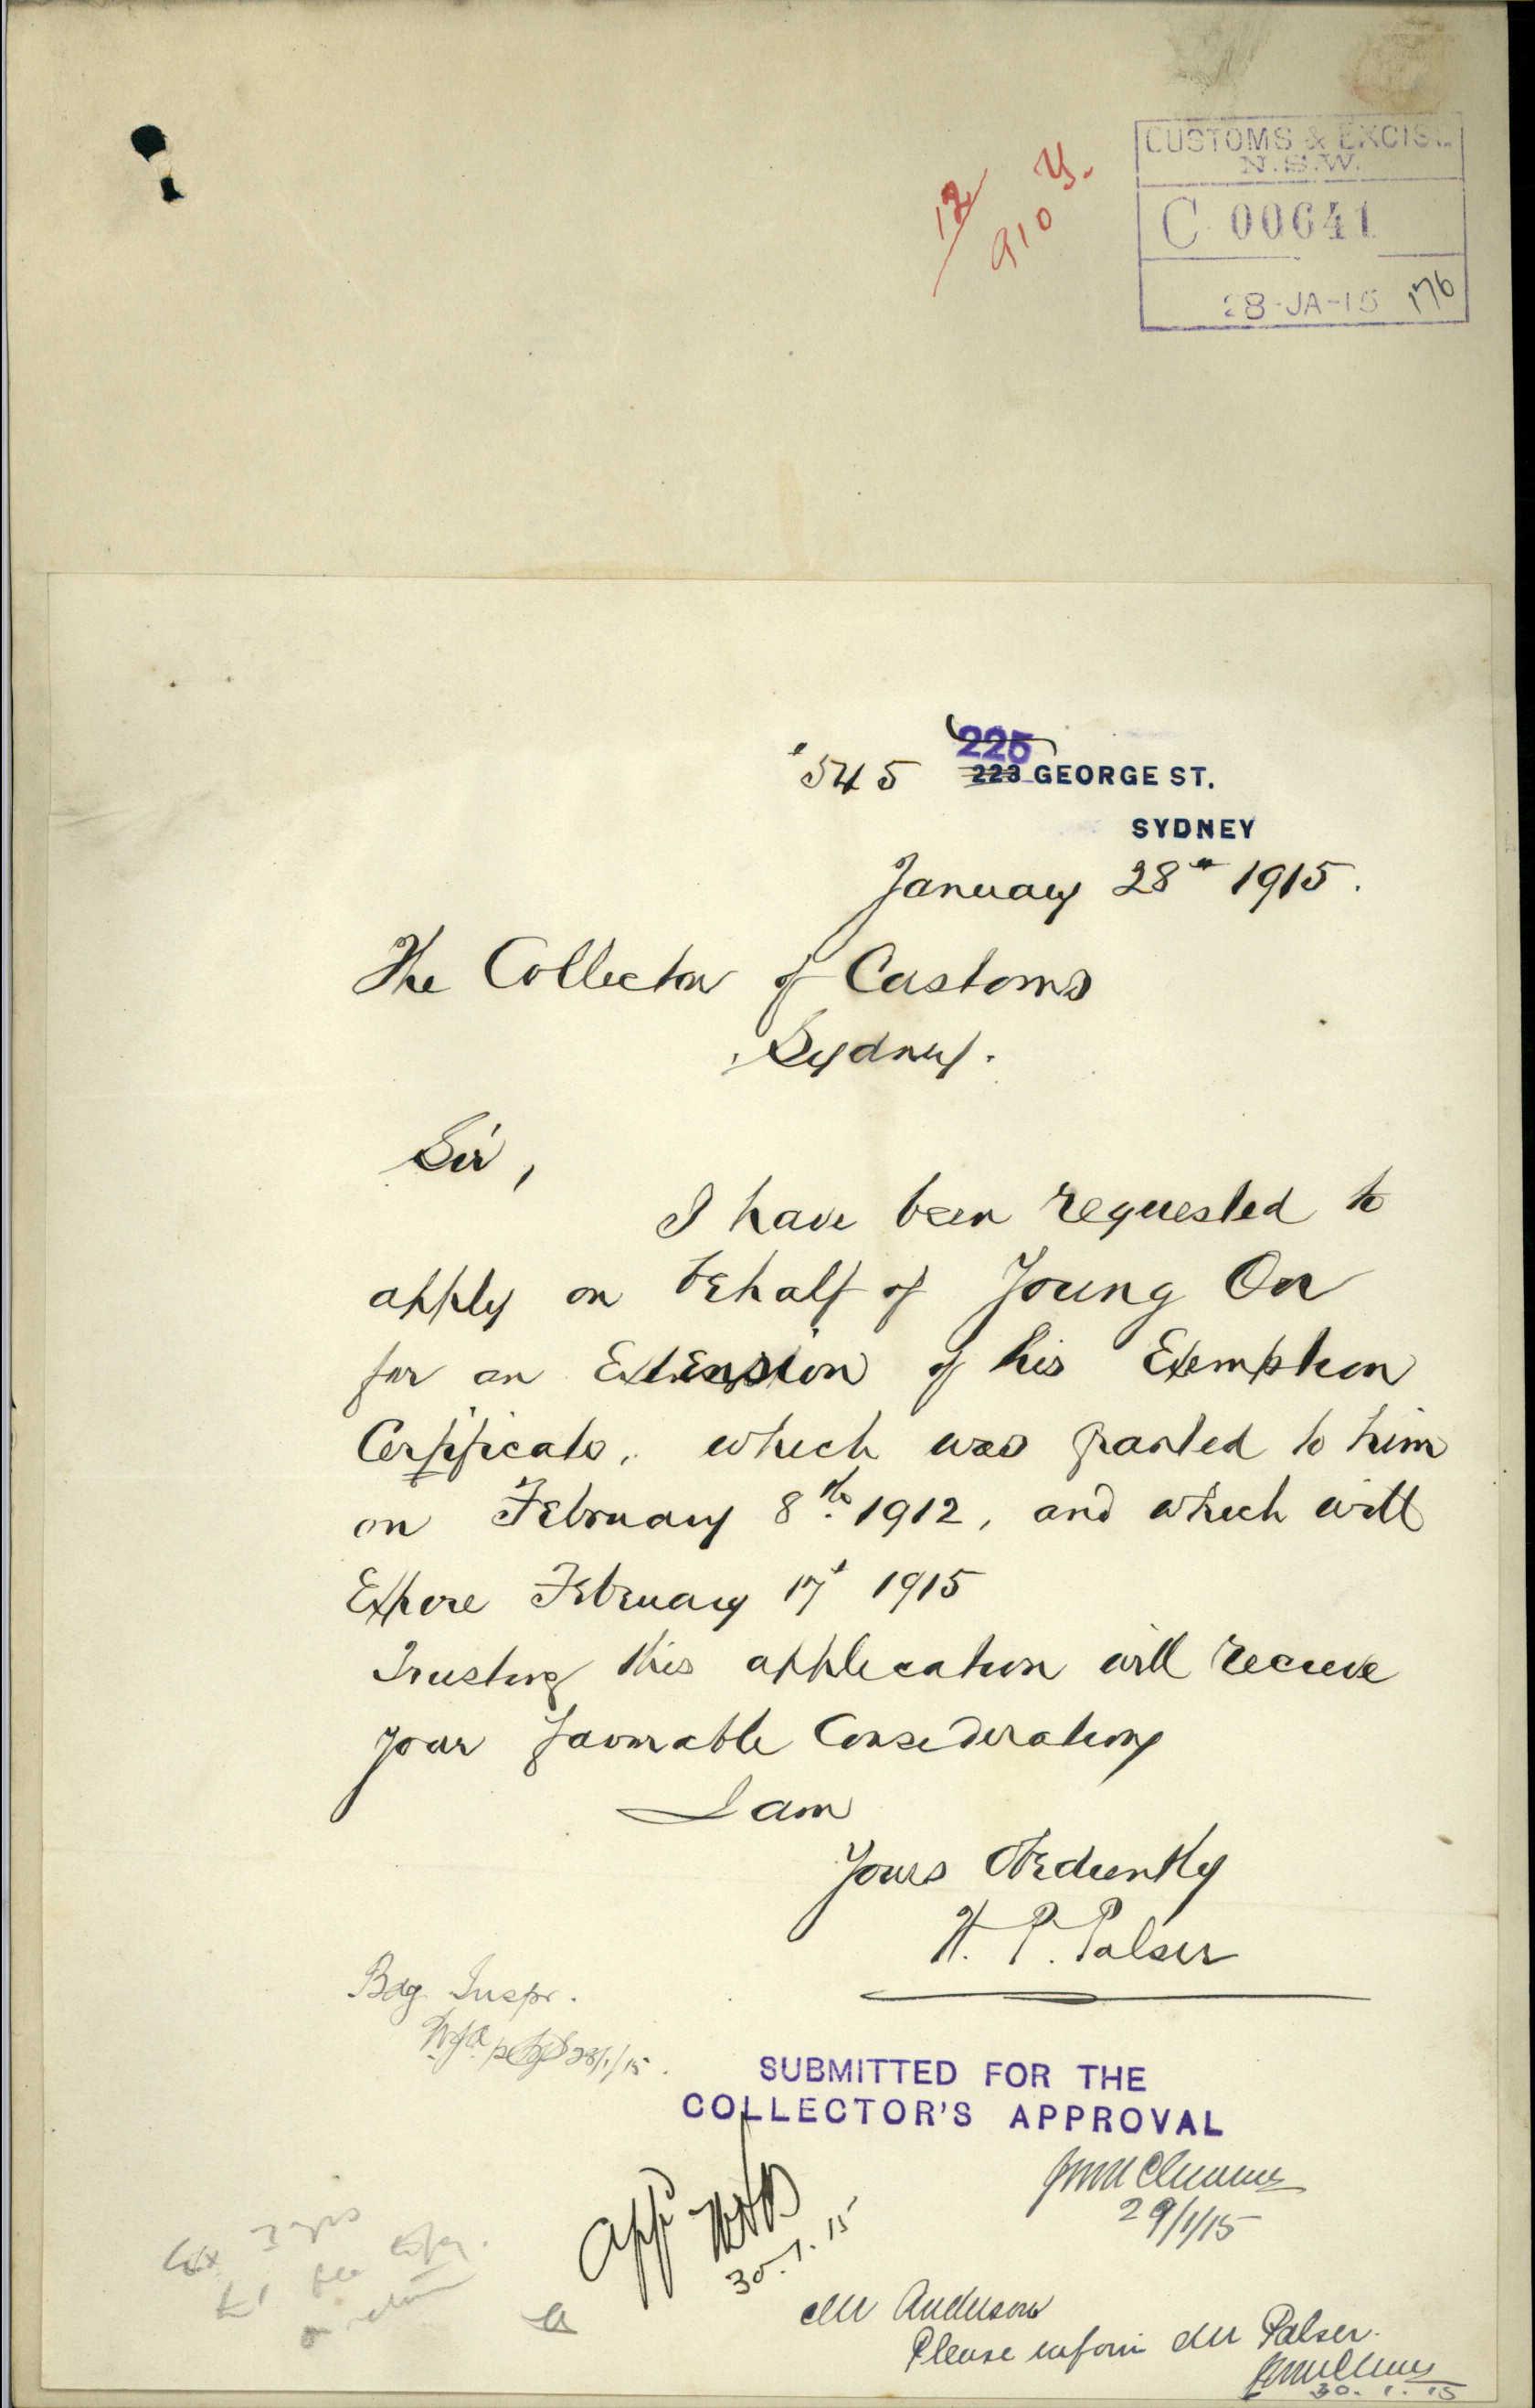 CUSTOMS & EXCISE
N.S.W.
C 00641
28-JA-15 176
12/9104.
225
545 223 GEORGE ST.
SYDNEY
January 28th 1915.
The Collector of Customs
Sydney.
Sir,
I have been requested to
apply on behalf of Young On
for an Extension of his Exemption
Certificate, which was granted to him
on February 8th 1912, and which will
Expire February 17t 1915
Trusting this application will receive
your favourable Consideration
I am
Yours Obediently
H. P. Palser
Bag. Inspr.
28/1/15.
SUBMITTED FOR THE
COLLECTOR'S APPROVAL
29/1/15
App
30.1.15
Ex 3 yrs
£1 fee
on return
Mr Anderson
Please inform Mr Palser.
30.1.15